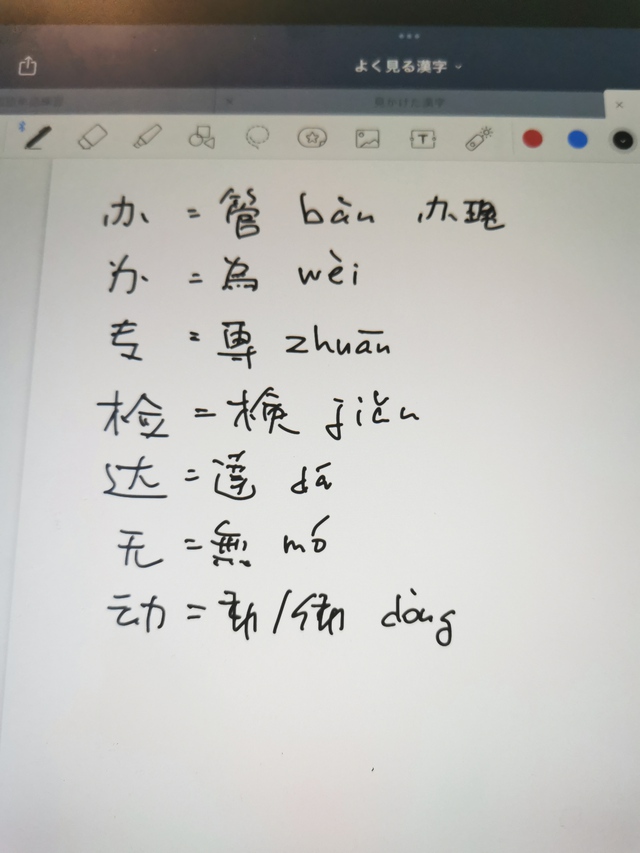 よく見る漢字
办 = 管 bàn 办理
为 = 為 wèi
专 = 專 zhuān
检 = 検 jiǎn
达 = 達 dá
无 = 無 mó
动 = 動/働 dòng